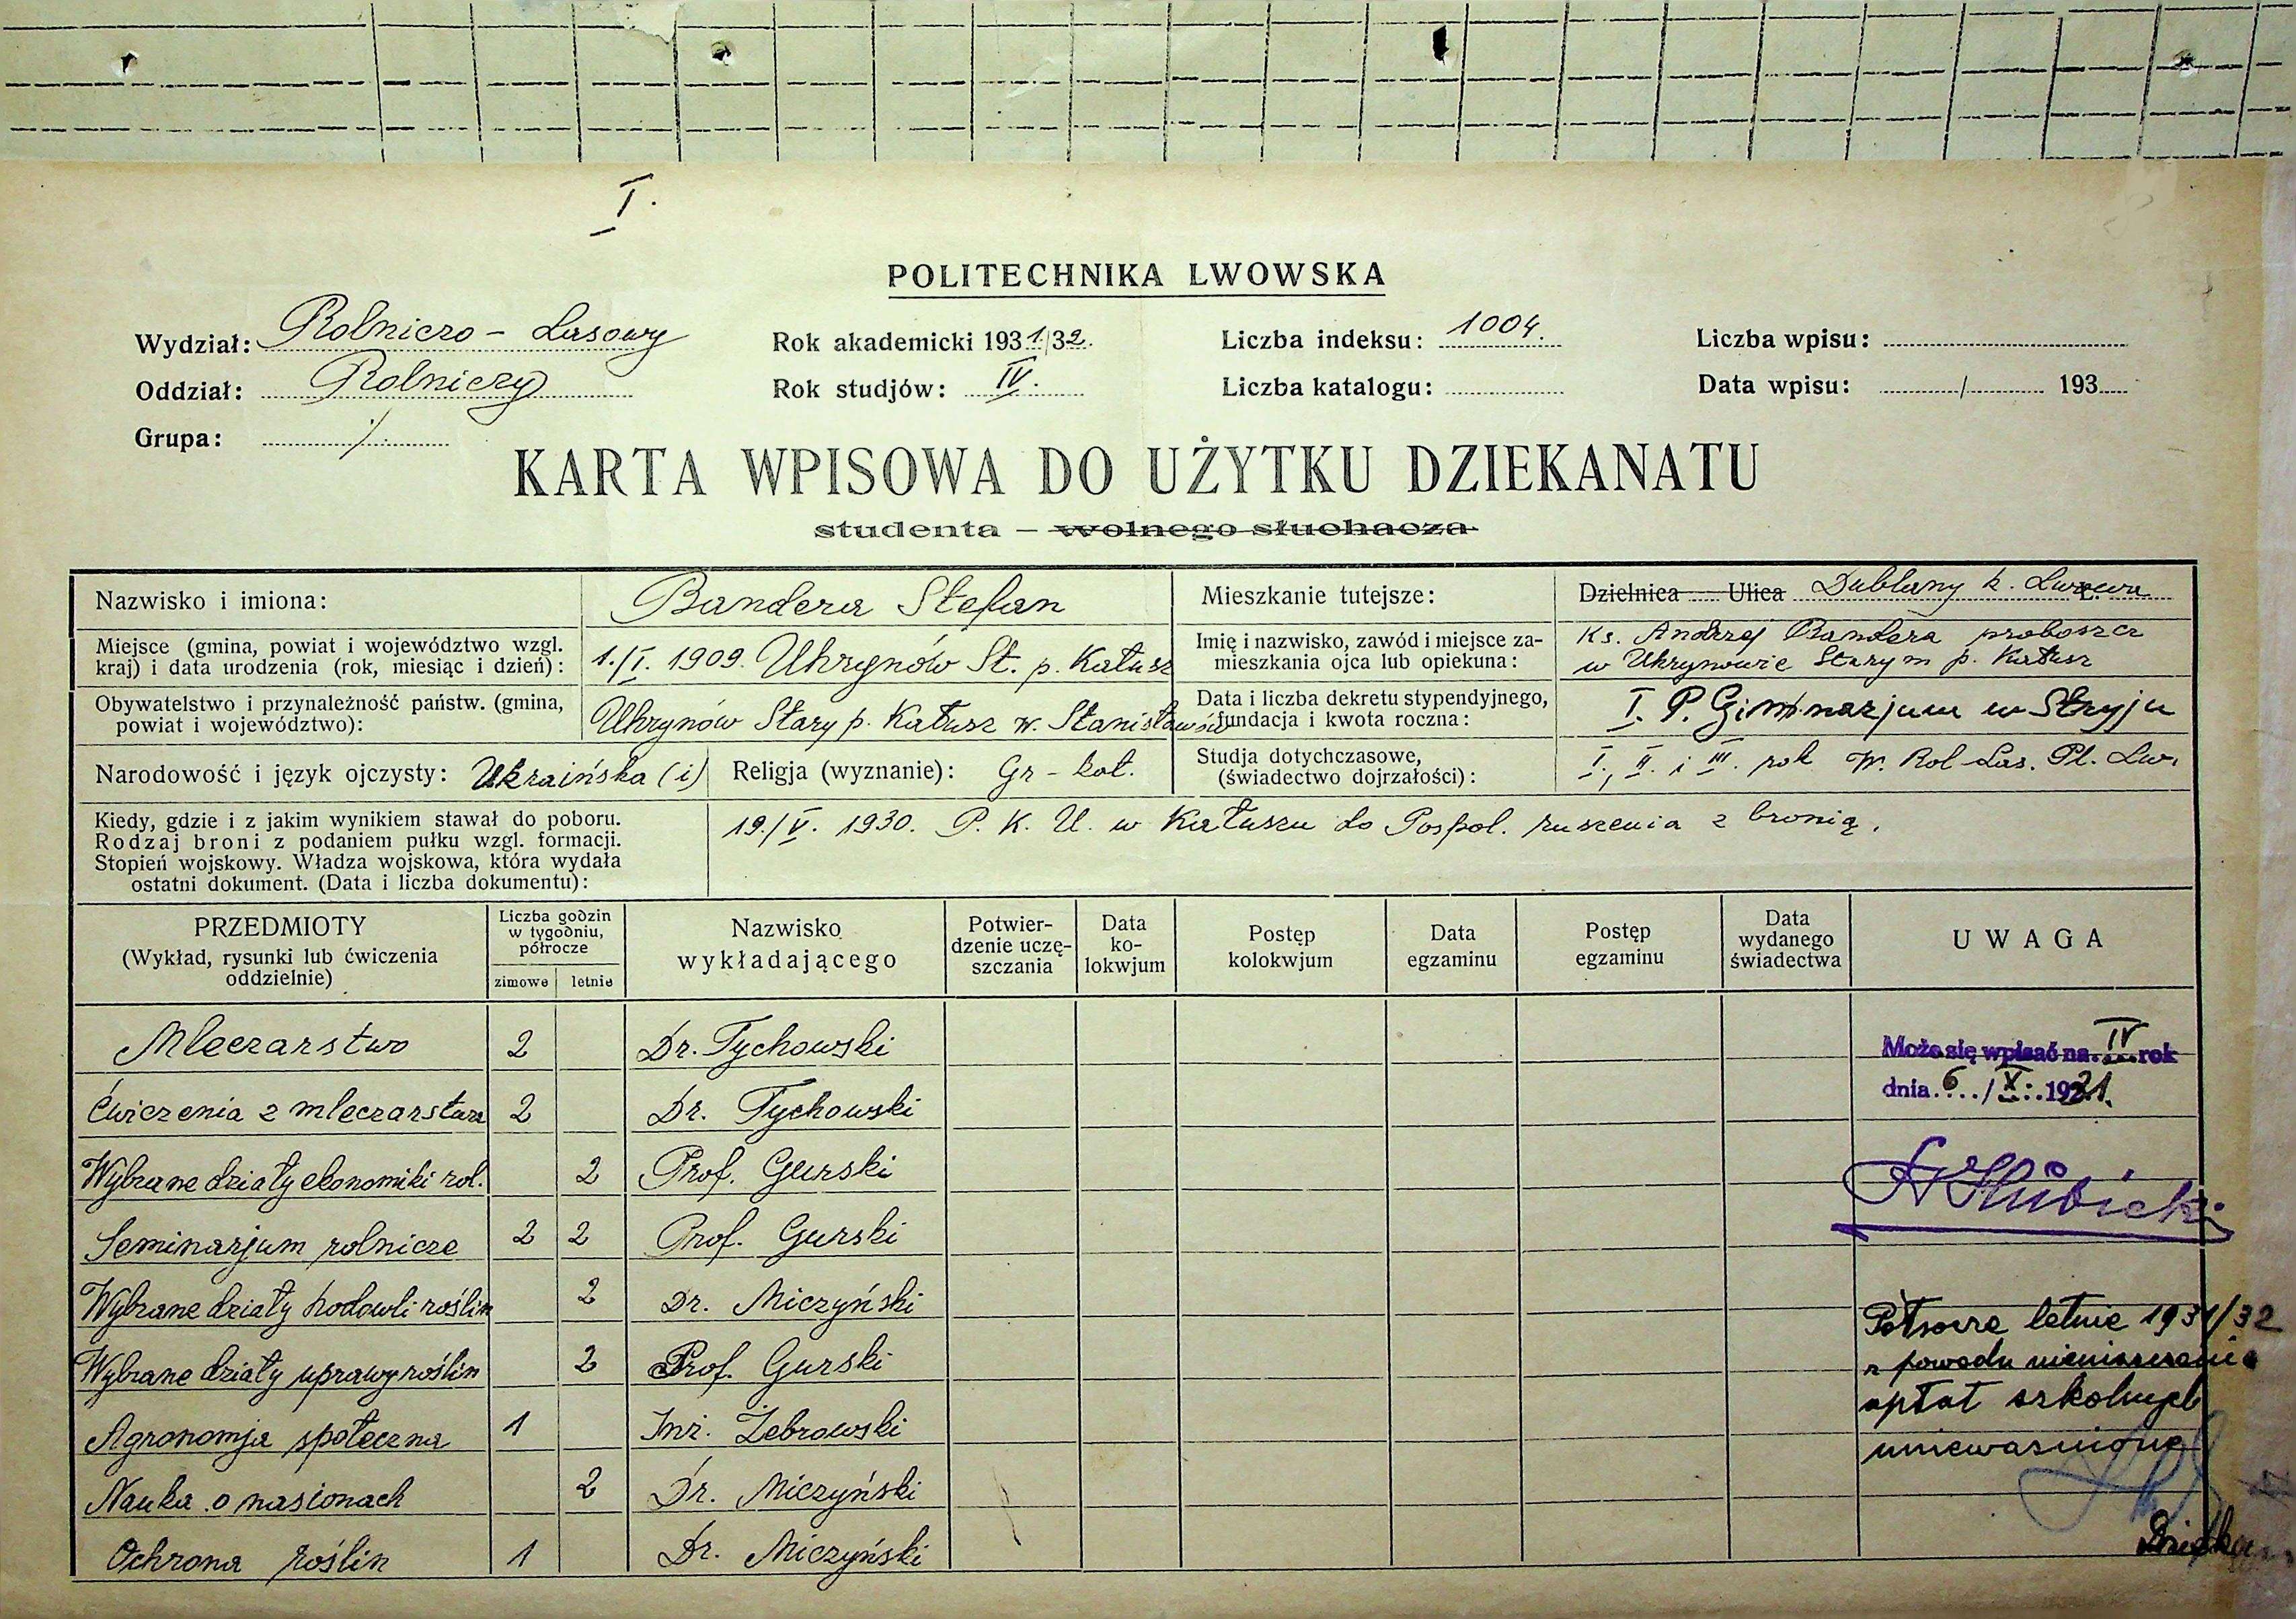 I.
POLITECHNIKA LWOWSKA
Wydział: Rolniczo - Lasowy
Rok akademicki 1931/32.
Liczba indeksu: 1004.
Liczba wpisu:
Oddział: Rolniczy
Rok studjów: IV.
Liczba katalogu:
Data wpisu: / 193
Grupa: /
KARTA WPISOWA DO UŻYTKU DZIEKANATU
studenta – wolnego słuchacza
Nazwisko i imiona: Bandera Stefan
Mieszkanie tutejsze: Dzielnica Ulica Dublany k. Lwowa
Miejsce (gmina, powiat i województwo wzgl.
kraj) i data urodzenia (rok, miesiąc i dzień):
1./I. 1909. Uhrynów St. p. Kałusz
Imię i nazwisko, zawód i miejsce za-
mieszkania ojca lub opiekuna:
Ks. Andrzej Bandera proboszcz
w Uhrynowie Starym p. Kałusz
Obywatelstwo i przynależność państw. (gmina,
powiat i województwo):
Uhrynów Stary p. Kałusz w. Stanisławów
Data i liczba dekretu stypendyjnego,
fundacja i kwota roczna:
I. P. Gimnazjum w Stryju
Narodowość i język ojczysty: Ukraińska (i)
Religja (wyznanie): Gr - kat.
Studja dotychczasowe,
(świadectwo dojrzałości):
I., II. i III. rok W. Rol-Las. Pl. Lw.
Kiedy, gdzie i z jakim wynikiem stawał do poboru.
Rodzaj broni z podaniem pułku wzgl. formacji.
Stopień wojskowy. Władza wojskowa, która wydała
ostatni dokument. (Data i liczba dokumentu):
19./V. 1930. P. K. U. w Kałuszu do Pospol. ruszenia z bronią.
PRZEDMIOTY
(Wykład, rysunki lub ćwiczenia
oddzielnie)
Liczba godzin
w tygodniu,
półrocze
zimowe letnie
Nazwisko
wykładającego
Potwier-
dzenie uczę-
szczania
Data
ko-
lokwjum
Postęp
kolokwjum
Data
egzaminu
Postęp
egzaminu
Data
wydanego
świadectwa
UWAGA
Mleczarstwo 2 Dr. Tychowski
Ćwiczenia z mleczarstwa 2 Dr. Tychowski
Wybrane działy ekonomiki rol. 2 Prof. Gurski
Seminarjum rolnicze 2 2 Prof. Gurski
Wybrane działy hodowli roślin 2 Dr. Miczyński
Wybrane działy uprawy roślin 2 Prof. Gurski
Agronomja społeczna 1 Inż. Żebrowski
Nauka o nasionach 2 Dr. Miczyński
Ochrona roślin 1 Dr. Miczyński
Może się wpisać na IV rok
dnia 6 / X. 1931.
Półrocze letnie 1931/32
z powodu nieuiszczenia
opłat szkolnych
unieważnione
Dziekan